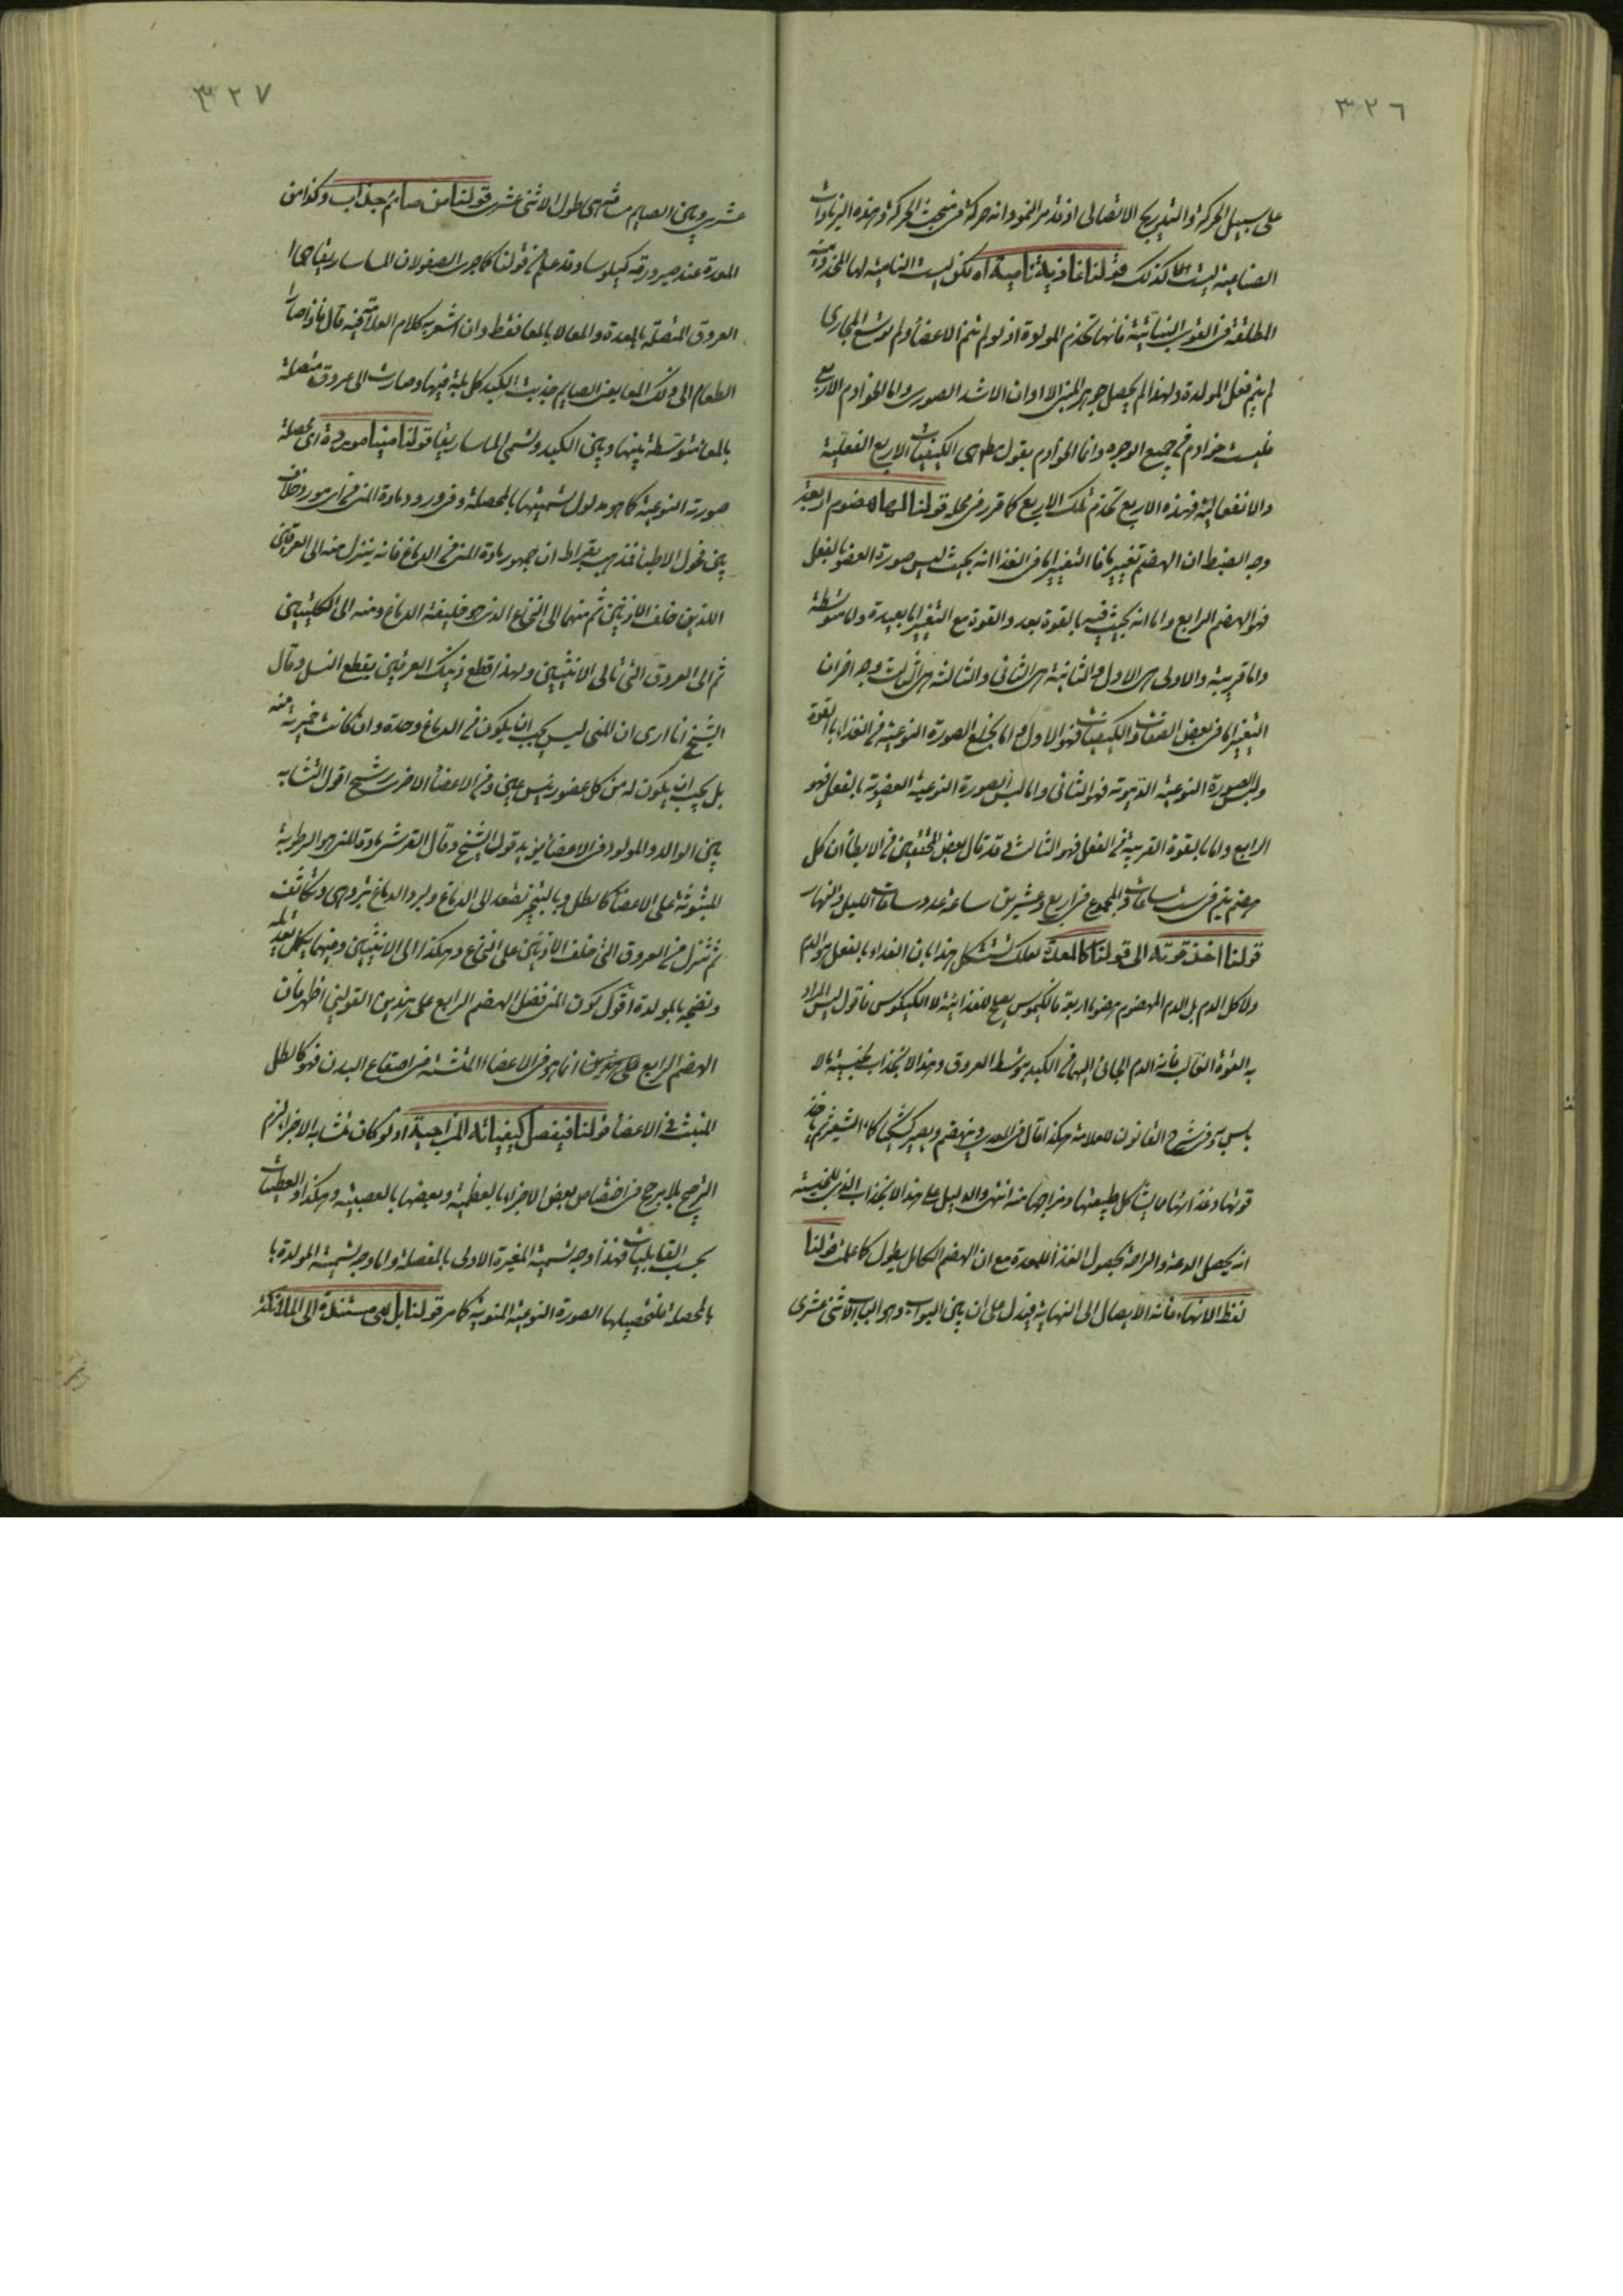 ٣٢٦
على سبيل الحركة والتدريج الاتصالى اذ قد مر النمو وانه حركة فى مبحث الحركة وهذه الزيادات
الصناعية ليست الا كذلك قولنا غاذية نامية اه لكن ليست النامية لها المخدومية
المطلقة فى القوى النباتية فانها تخدم المولدة اذ لو لم تنم الاعضاء ولم توسع المجارى
لم يتم فعل المولدة ولهذا لم يحصل جوهر المنى الا اوان الاشد الصورى واما الخوادم الاربع
فليست خوادم فى جميع الوجوه وانما الخوادم بقول مطلق هى الكيفيات الاربع الفعلية
والانفعالية فهذه الاربع تخدم تلك الاربع كما قرر فى محله قولنا لها هضوم اربعة
وجه الضبط ان الهضم تغيير ما فالتغيير اما فى الغذاء انه بحيث لبس صورة العضو بالفعل
فهو الهضم الرابع واما انه بحيث فيه بالقوة بعد والقوة مع التغير اما بعيدة واما متوسطة
واما قريبة والاولى هى الاول والثانية هى الثانى والثالثة هى الثالث وجه اخر ان
التغير اما فى بعض الصفات والكيفيات فهو الاول واما بخلع الصورة النوعية فى الغذاء بالقوة
ولبس الصورة النوعية الدموية فهو الثانى واما لبس الصورة النوعية العضوية بالفعل فهو
الرابع واما بالقوة القريبة فى الفعل فهو الثالث وقد قال بعض المحققين فى الابطاء ان كل
هضم يتم فى ست ساعات والمجموع فى اربع وعشرين ساعة عدد ساعات الليل والنهار
قولنا اخذ قوته الى قولنا كالمعدة لعلك تستشكل هذا بان الغذاء بالفعل هو الدم
ولا كل الدم بل الدم المهضوم هضوما اربعة فالكيموس يصلح للغذائية لا الكيلوس فاقول ليس المراد
به القوة الغالبة فانه الدم الجائى اليها فى الكبد بتوسط العروق وهذا الانجذاب طبيعية بلا
باس وفى شرح القانون للعلامة هكذا قال فى المعدة وينهضم ويصير كشكا كماء الشعير ثم ياخذ
قوتها وغذائها ما يشاكل طبيعتها ومزاجها منه انتهى والدليل على هذا الانجذاب الذى للخسة
انه يحصل الدعة والراحة بحصول الغذاء للمعدة مع ان الهضم الكامل يطول كما علمت قولنا
لفظ الانهاء فانه الايصال الى النهاية فيدل على ان بين البواب وهو الباب الاثنى عشرى
٣٢٧
عشرى وبين الصايم مسافة هى طول الاثنى عشرى قولنا من صائم جذاب وكذا من
المعدة عند صيرورته كيلوسا وقد علم فى قولنا كما جرى الصفو لان الماساريقا هى ا
العروق المتصلة بالمعدة والمعاء لا بالمعاء فقط وان اشعر به كلام العلامة فيه قال فاذا صار
الطعام الى ذلك المعا يعنى الصايم جذبت الكبد كل بلة فيها وصارت الى عروق متصلة
بالمعا متوسطة بينها وبين الكبد وتسمى الماساريقا قولنا منيا موردة اى محصلة
صورته النوعية كما هو مدلول تسميتها بالمحصلة وفى ورود مادة المنى فى اى مورد خلاف
بين فحول الاطباء فذهب بقراط ان جمهور مادة المنى فى الدماغ فانه ينزل منه الى العرقين
اللذين خلف الاذنين ثم منهما الى النخاع الذى هو خليفة الدماغ ومنه الى الكليتين
ثم الى العروق التى تاتى الانثيين ولهذا قطع ذينك العرقين يقطع النسل وقال
الشيخ انا ارى ان المنى ليس يجب ان يكون فى الدماغ وحده وان كانت خميرته منه
بل يجب ان يكون له من كل عضو رئيس عين وفى الاعضاء الاخر رشح اقول التشابه
بين الوالد والمولود فى الاعضاء يؤيد قول الشيخ وقال القرشى مادة المنى هو الرطوبة
المبثوثة على الاعضاء كالطل وبالتبخر تصعد الى الدماغ وبرد الدماغ تبرد هى وتكاثف
ثم تنزل فى العروق التى خلف الاذنين على النخاع وهكذا الى الانثيين ومنهما يكمل تعديله
ونضجه بالمولدة اقول كون المنى فضل الهضم الرابع على هذين القولين اظهر فان
الهضم الرابع على هذين انما هو فى الاعضاء المنشئة فى اصقاع البدن فهو كالطل
المنبث فى الاعضاء قولنا فيفصل كيفياته المزاجية اذ لو كان متشابه الاجزاء لزم
الترجيح بلا مرجح فى اختصاص بعض الاجزاء بالعظمية وبعضها بالعصبية وهكذا والعطيات
بحسب القابليات فهذا وجه تسمية المغيرة الاولى بالمفصلة واما وجه تسمية المولدة با
بالمحصلة فلتحصيلها الصورة النوعية المنوية كما مر قولنا بل هى مستندة الى الملائكة